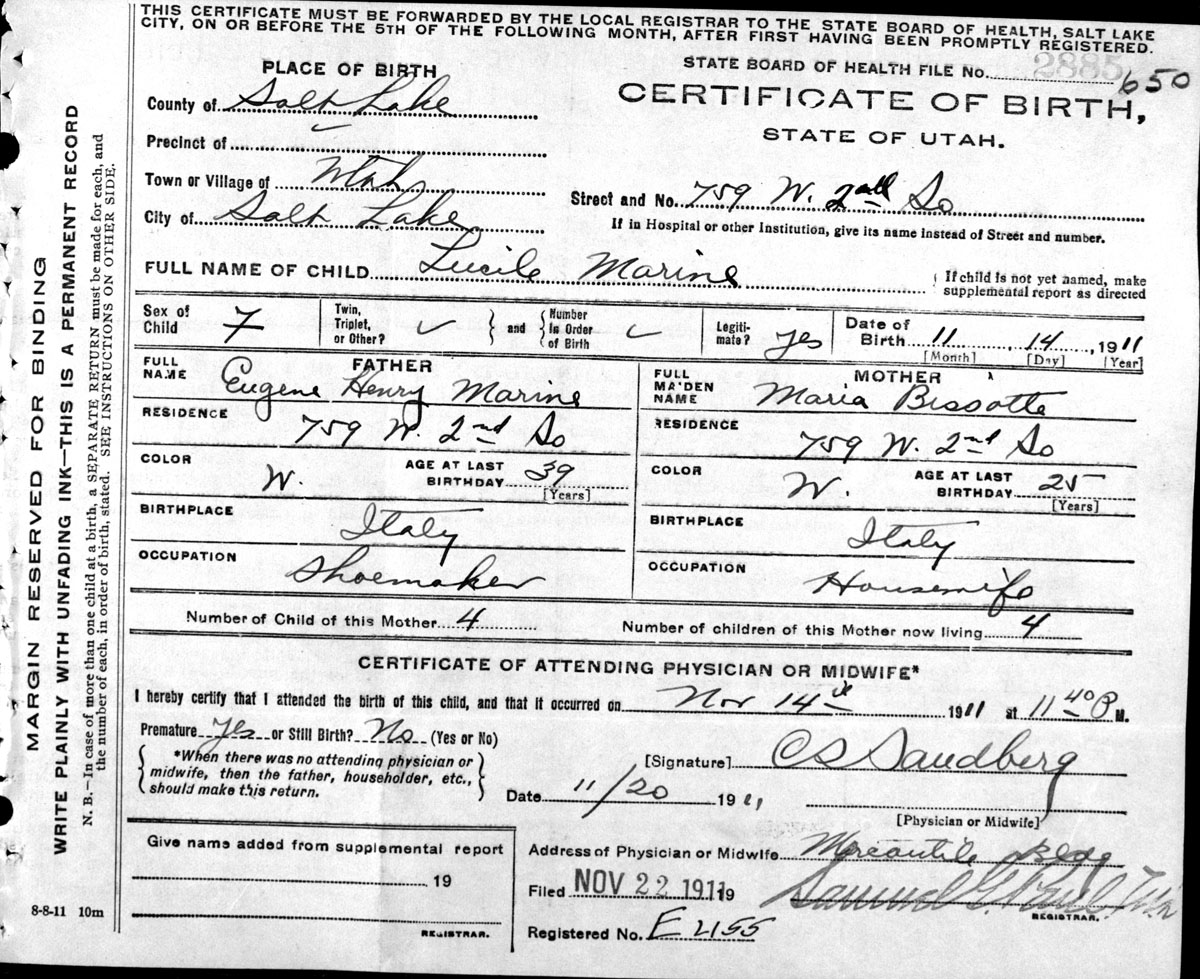 THIS CERTIFICATE MUST BE FORWARDED BY THE LOCAL REGISTRAR TO THE STATE BOARD OF HEALTH, SALT LAKE
CITY, ON OR BEFORE THE 5TH OF THE FOLLOWING MONTH, AFTER FIRST HAVING BEEN PROMPTLY REGISTERED.
MARGIN RESERVED FOR BINDING
WRITE PLAINLY WITH UNFADING INK—THIS IS A PERMANENT RECORD
N. B.—In case of more than one child at a birth, a SEPARATE RETURN must be made for each, and
the number of each, in order of birth, stated. SEE INSTRUCTIONS ON OTHER SIDE.
8-8-11 10m
STATE BOARD OF HEALTH FILE No. 2885 650
CERTIFICATE OF BIRTH,
STATE OF UTAH.
PLACE OF BIRTH
County of Salt Lake
Precinct of ✓
Town or Village of Utah
City of Salt Lake
Street and No. 759 W. 2nd So
If in Hospital or other Institution, give its name instead of Street and number.
FULL NAME OF CHILD Lucile Marine
If child is not yet named, make
supplemental report as directed
Sex of Child F
Twin, Triplet, or Other? ✓ and Number In Order of Birth ✓
Legitimate? Yes
Date of Birth 11, 14, 1911
[Month] [Day] [Year]
FATHER
FULL NAME Eugene Henry Marine
RESIDENCE 759 W. 2nd So
COLOR W. AGE AT LAST BIRTHDAY 39
[Years]
BIRTHPLACE Italy
OCCUPATION Shoemaker
MOTHER
FULL MAIDEN NAME Maria Bissotte
RESIDENCE 759 W. 2nd So
COLOR W. AGE AT LAST BIRTHDAY 25
[Years]
BIRTHPLACE Italy
OCCUPATION Housewife
Number of Child of this Mother 4
Number of children of this Mother now living 4
CERTIFICATE OF ATTENDING PHYSICIAN OR MIDWIFE*
I hereby certify that I attended the birth of this child, and that it occurred on Nov 14th 1911 at 11 40 P M.
Premature Yes or Still Birth? No (Yes or No)
*When there was no attending physician or
midwife, then the father, householder, etc.,
should make this return.
[Signature] C S Sandberg
Date 11/20 1911
[Physician or Midwife]
Give name added from supplemental report
19
REGISTRAR.
Address of Physician or Midwife Mercantile Bldg
Filed NOV 22 1911 19
Samuel G. Paul
REGISTRAR.
Registered No. E 2155